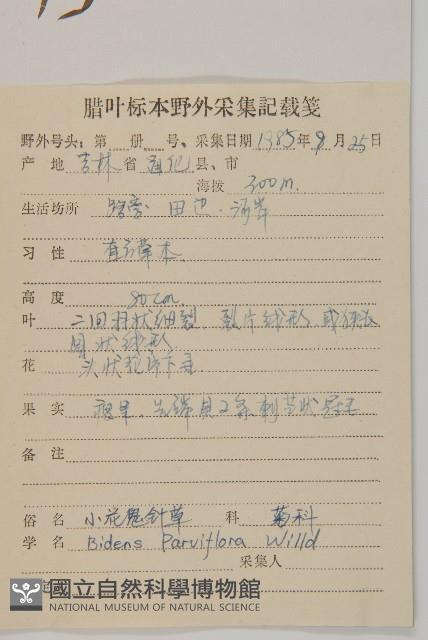 腊叶标本野外采集記载笺
野外号头：第 册 号、采集日期 1985年8月25日
产 地 吉林省 通化 县、市
海拨 300m.
生活场所 路旁 田边、河岸
习 性 直立草本
高 度 80cm
叶 二回羽状细裂 裂片线形 或
状线形
花 头状花序
果 实 瘦果、先端具2条刺芒状冠毛
备 注
俗 名 小花鬼针草 科 菊科
学 名 Bidens Parviflora Willd
采集人
定
國立自然科學博物館
NATIONAL MUSEUM OF NATURAL SCIENCE